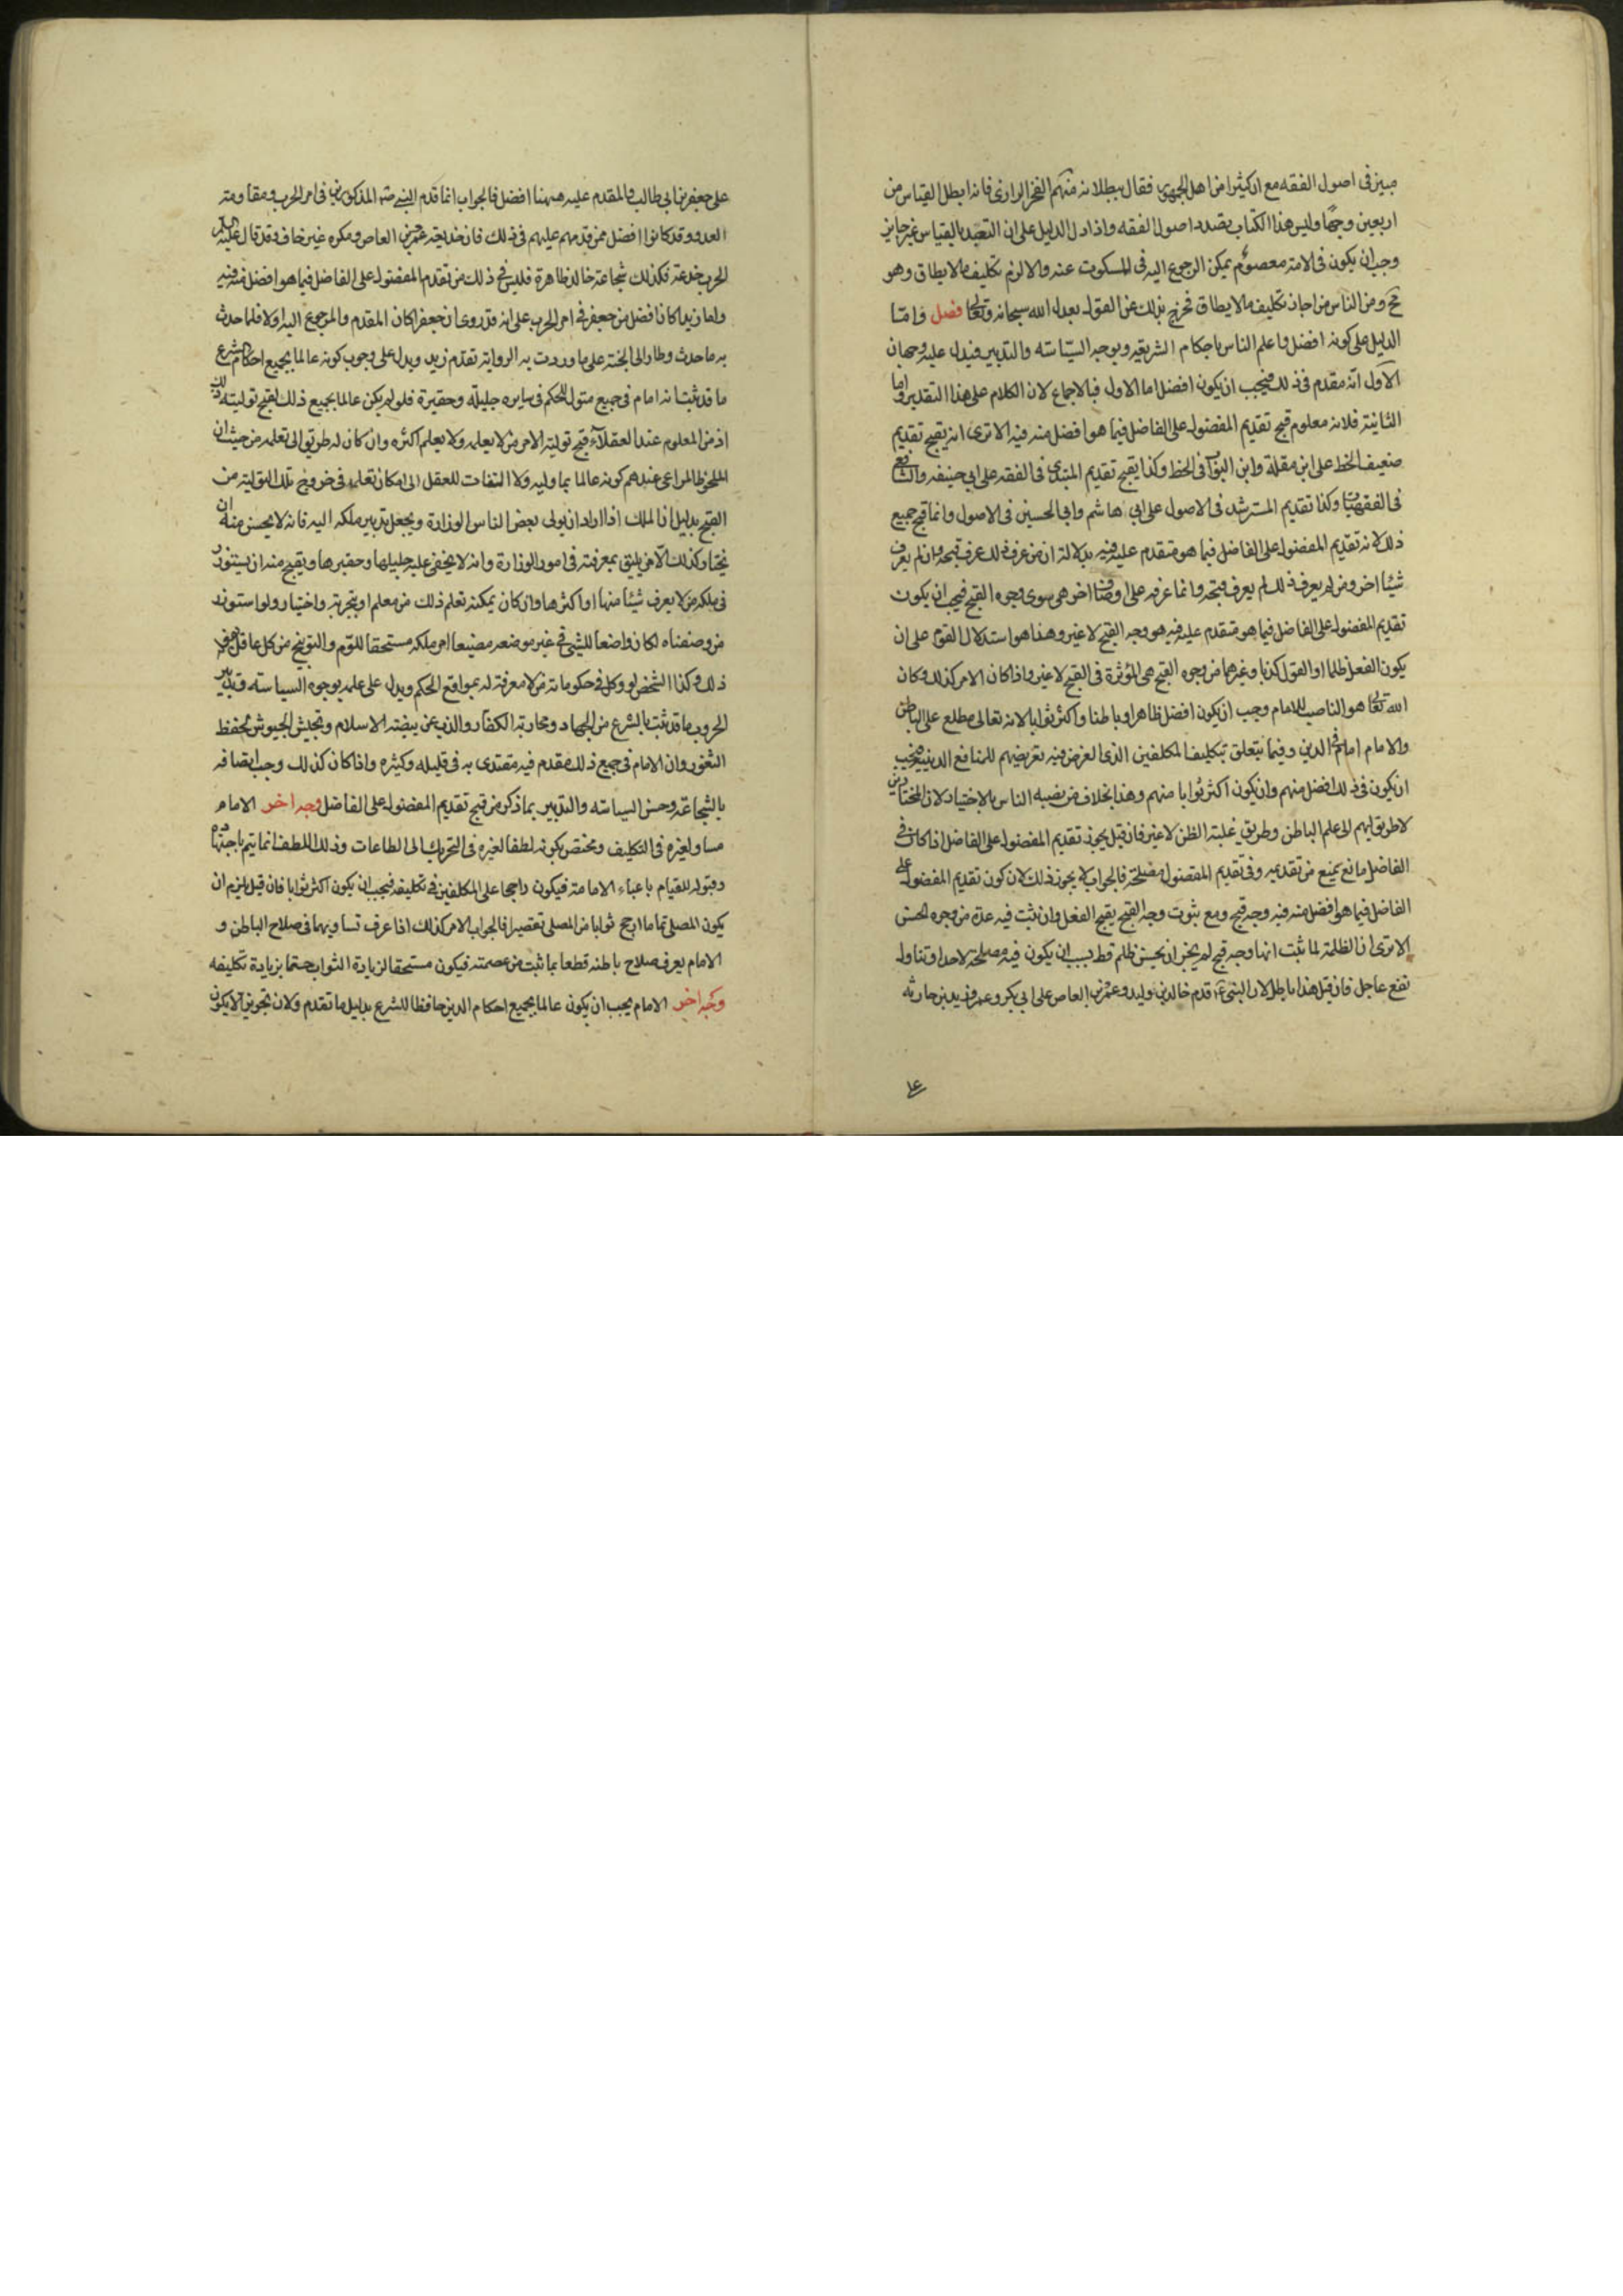 مبين في اصول الفقه مع ان كثيرا من اهل الجمهور فقال ببطلانه منهم الفخر الرازي فانه ابطل القياس من
اربعين وجها وليس هذا الكتاب بصدد اصول الفقه واذا دل الدليل على ان التعبد بالقياس غير جايز
وجب ان يكون في الامة معصوم يمكن الرجوع اليه في المسكوت عنه والا لزم تكليف ما لا يطاق وهو
مح ومن الناس من اجاز تكليف ما لا يطاق فخرج بذلك عن القول بعدل الله سبحانه وتعالى فصل واما
الدليل على كونه افضل واعلم الناس باحكام الشريعة وبوجه السياسة والتدبير فيدل عليه وجهان
الاول انه مقدم في ذلك فيجب ان يكون افضل اما الاول فبالاجماع لان الكلام على هذا التقدير واما
الثانية فلانه معلوم قبح تقديم المفضول على الفاضل فيما هو افضل منه فيه الا ترى انه يقبح تقديم
ضعيف الخط على ابن مقلة وابن البواب في الخط وكذا يقبح تقديم المبتدي في الفقه على ابي حنيفه والشافعي
في الفقهيات وكذا تقديم المسترشد في الاصول على ابي هاشم وابي الحسين في الاصول وانما قبح جميع
ذلك لانه تقديم المفضول على الفاضل فيما هو متقدم عليه فيه بدلالة ان من عرف ذلك عرف قبحه وان لم يعرف
شيئا اخر ومن لم يعرف ذلك لم يعرف قبحه وانما عرفه على اوصاف اخر هي سوى وجوه القبح فيجب ان يكون
تقديم المفضول على الفاضل فيما هو متقدم عليه فيه هو وجه القبح لا غير وهذا هو استدلال القوم على ان
يكون الفعل ظلما او القول كذبا وغيرهما من وجوه القبح هي المؤثرة في القبح لا غير واذا كان الامر كذلك وكان
الله تعالى هو الناصب للامام وجب ان يكون افضل ظاهرا وباطنا واكثر ثوابا لانه تعالى مطلع على الباطن
والامام امام في الدين وفيما يتعلق بتكليف المكلفين الذي الغرض فيه تعريضهم للمنافع الدينية فيجب
ان يكون في ذلك افضل منهم وان يكون اكثر ثوابا منهم وهذا بخلاف من نصبه الناس بالاختيار لان المختارين
لا طريق لهم الى علم الباطن وطريق غلبة الظن لا غير فان قيل يجوز تقديم المفضول على الفاضل اذا كان في
الفاضل مانع يمنع من تقديمه وفي تقديم المفضول مصلحة فالجواب لا يجوز ذلك لان كون تقديم المفضول على
الفاضل فيما هو افضل منه فيه وجه قبح ومع ثبوت وجه القبح يقبح الفعل وان ثبت فيه عدة من وجوه الحسن
الا ترى ان الظلمة لما ثبت انها وجه قبح لم يجز ان يحسن ظلم قط بسبب ان يكون فيه مصلحة لاحد او تناول
نفع عاجل فان قيل هذا باطل لان النبي ع قدم خالد بن وليد وعمرو بن العاص على ابي بكر وعمر وزيد بن حارثه
على جعفر بن ابي طالب والمقدم عليه ههنا افضل فالجواب انما قدم النبي ص المذكورين في امر الحرب ومقاومة
العدو وقد كانوا افضل ممن قدمهم عليهم في ذلك فان خديعة عمرو بن العاص ومكره غير خاف وقد قال عليه السلام
الحرب خدعة وكذلك شجاعة خالد ظاهرة فليس في ذلك من تقدم المفضول على الفاضل فيما هو افضل منه فيه
واما زيد كان افضل من جعفر في امر الحرب على انه قد روي ان جعفر كان المقدم والمرجوع اليه اولا فلما حدث
به ما حدث وطار الى الجنة على ما وردت به الرواية تقدم زيد ويدل على وجوب كونه عالما بجميع احكام الشرع
ما قد ثبت انه امام في جميع متول للحكم في سايره جليلة وحقيرة فلو لم يكن عالما بجميع ذلك لقبح توليته ذلك
اذ من المعلوم عند العقلاء قبح تولية الامر من لا يعلمه ولا يعلم اكثره وان كان له طريق الى تعلمه من حيث ان
الملحوظ المراعى عندهم كونه عالما بما وليه ولا التفات للعقل الى امكان تعلمه في خروج تلك التولية من
القبح بدليل ان الملك اذا اراد ان يولي بعض الناس الوزارة ويجعل تدبير ملكه اليه فانه لا يحسن منه ان
يختار كذلك الا من يليق بمعرفته في امور الوزارة وانه لا يخفى عليه جليلها وحقيرها ويقبح منه ان يستوزر
في ملكه من لا يعرف شيئا منها او اكثرها وان كان يمكنه تعلم ذلك من معلم او بتجربة واختيار ولو استوزر
من وصفناه لكان واضعا للشيء في غير موضعه مضيعا امر ملكه مستحقا للوم والتوبيخ من كل عاقل عرف
ذلك وكذا الشخص لو وكل في حكوماته من لا معرفة له بمواقع الحكم ويدل على علمه بوجوه السياسة وتدبير
الحروب ما قد ثبت بالشرع من الجهاد ومحاربة الكفار والذب عن بيضة الاسلام وتجييش الجيوش وحفظ
الثغور وان الامام في جميع ذلك مقدم فيه مقتدى به في قليله وكثيره واذا كان كذلك وجب اتصافه
بالشجاعة وحسن السياسة والتدبير بما ذكر من قبح تقديم المفضول على الفاضل وجه اخر الامام
مساو لغيره في التكليف ومختص بكونه لطفا لغيره في التحريك الى الطاعات وذلك اللطف انما يتم باجتهاده
وقبوله للقيام باعباء الامامة فيكون راجحا على المكلفين في تكليفه فيجب ان يكون اكثر ثوابا فان قيل يلزم ان
يكون المصلي تماما ارجح ثوابا من المصلي تقصيرا فالجواب الامر كذلك اذا عرف تساويهما في صلاح الباطن و
الامام يعرف صلاح باطنه قطعا بما ثبت من عصمته فيكون مستحقا لزيادة الثواب حتما بزيادة تكليفه
وجه اخر الامام يجب ان يكون عالما بجميع احكام الدين حافظا للشرع بدليل ما تقدم ولان تجويز الا يكون